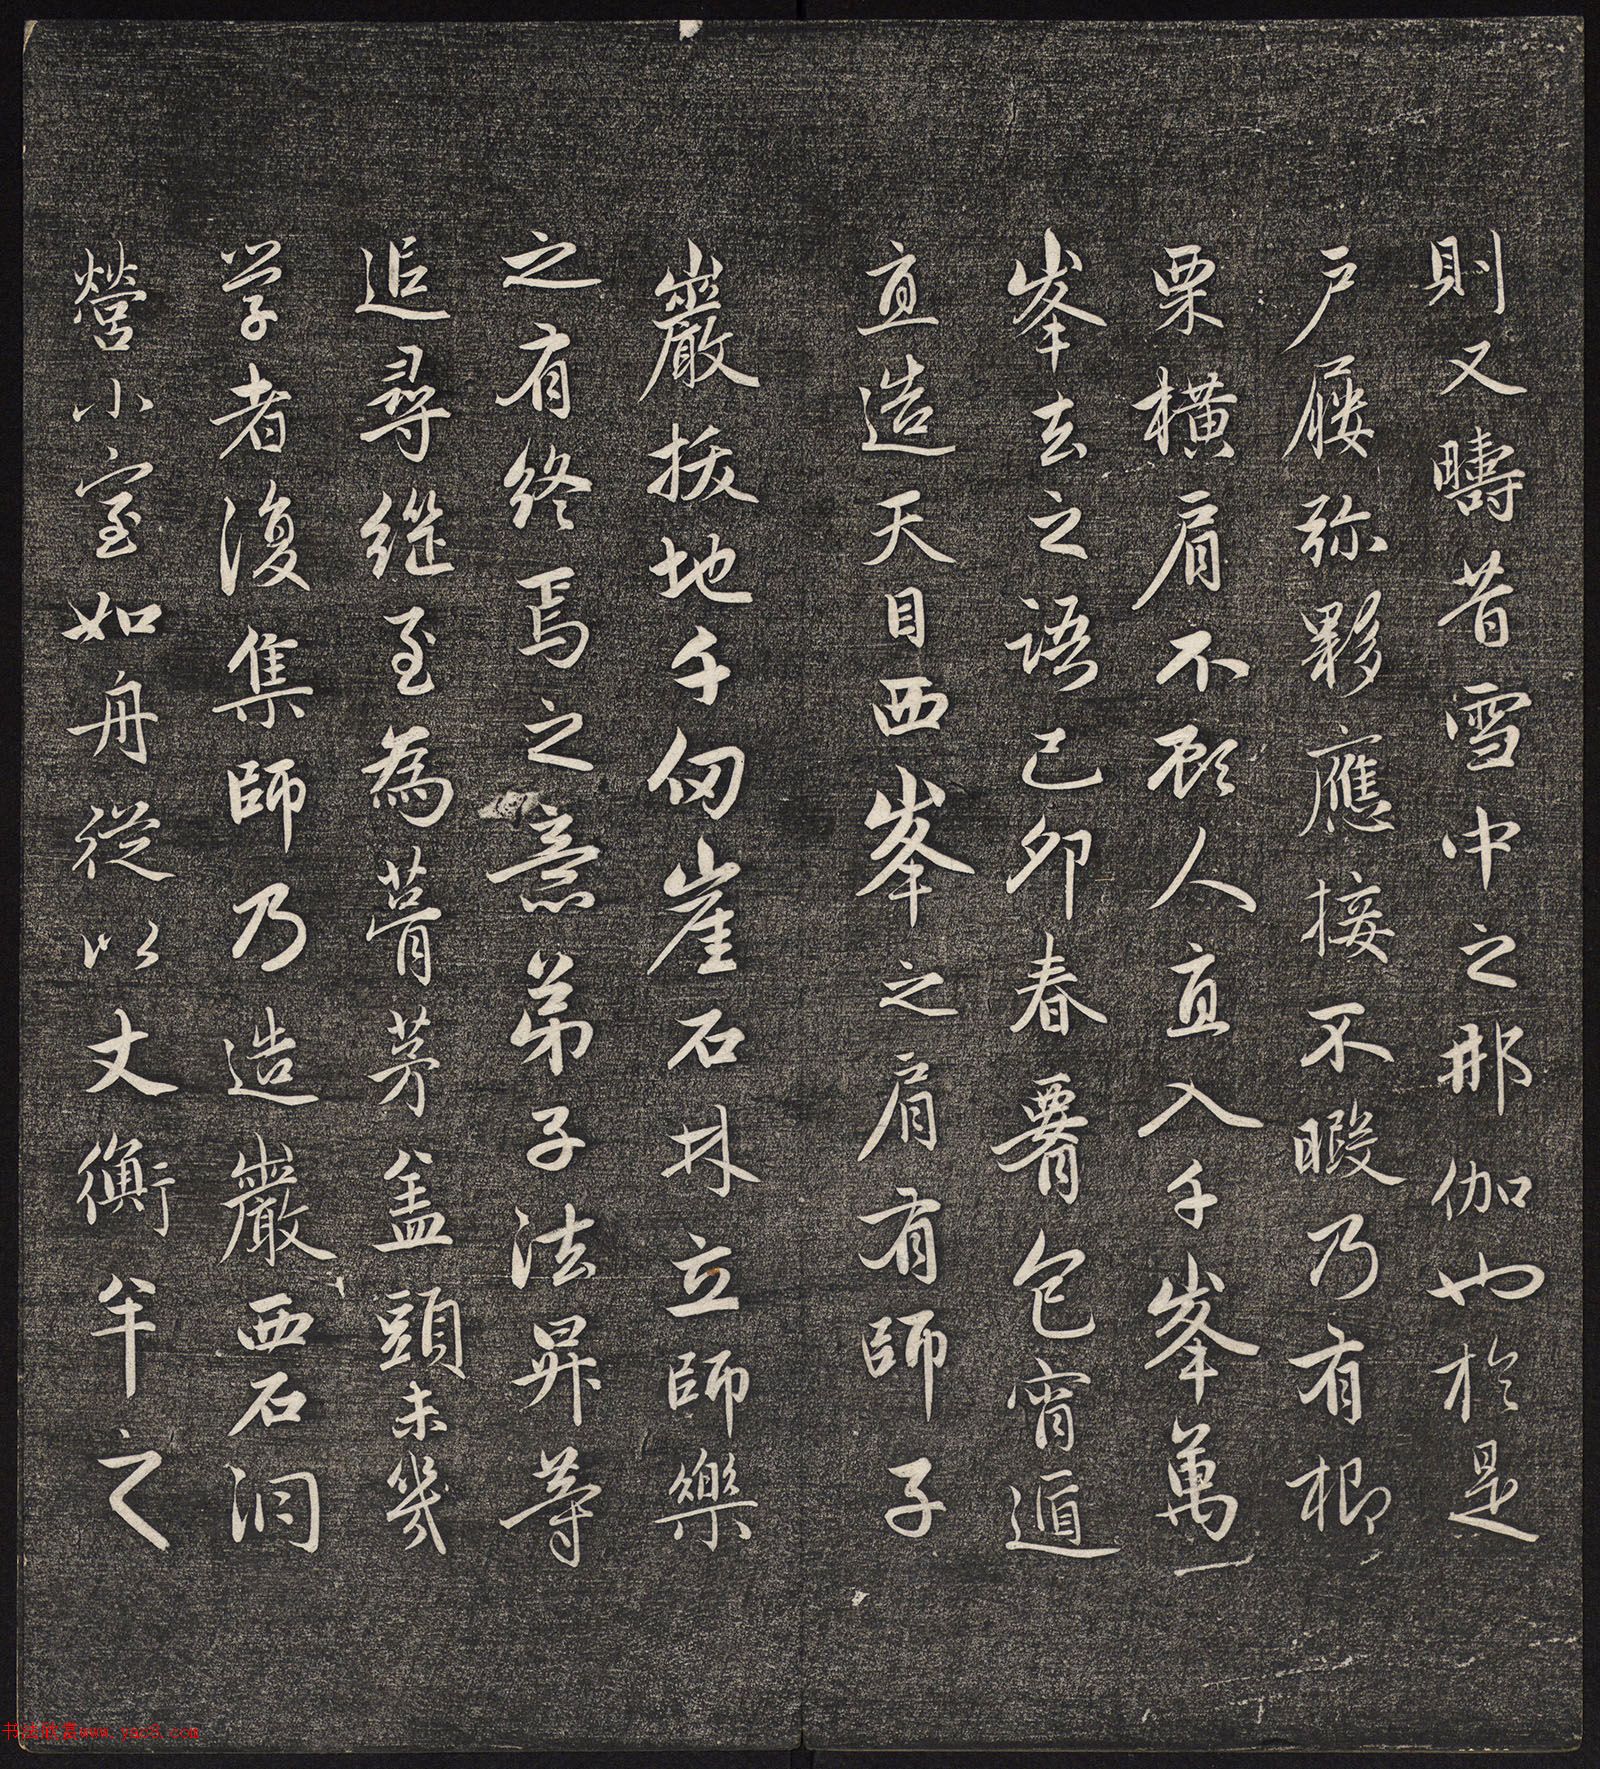 則又疇昔雪中之那伽也於是
戶屨弥夥應接不暇乃有楖
栗橫肩不顧人直入千峯萬
峯去之語己卯春瞖包宵遁
直造天目西峯之肩有師子
巖拔地千仞崖石林立師樂
之有終焉之意弟子法昇等
追尋继至為菁茅盖頭未幾
学者復集師乃造巖西石洞
營小室如舟從以丈衡半之